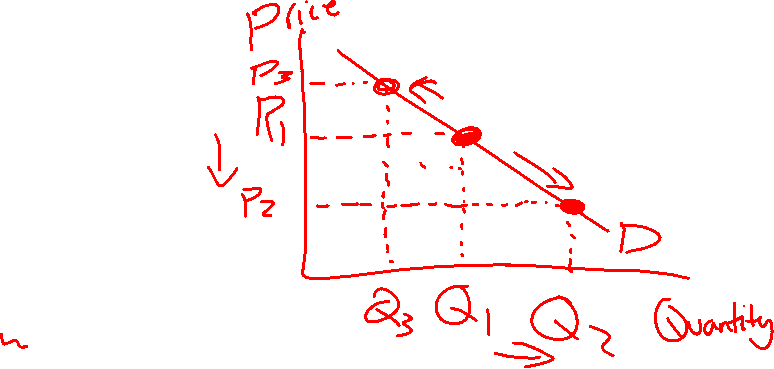 Price
P3
P1
P2
D
Q3 Q1 Q2 Quantity